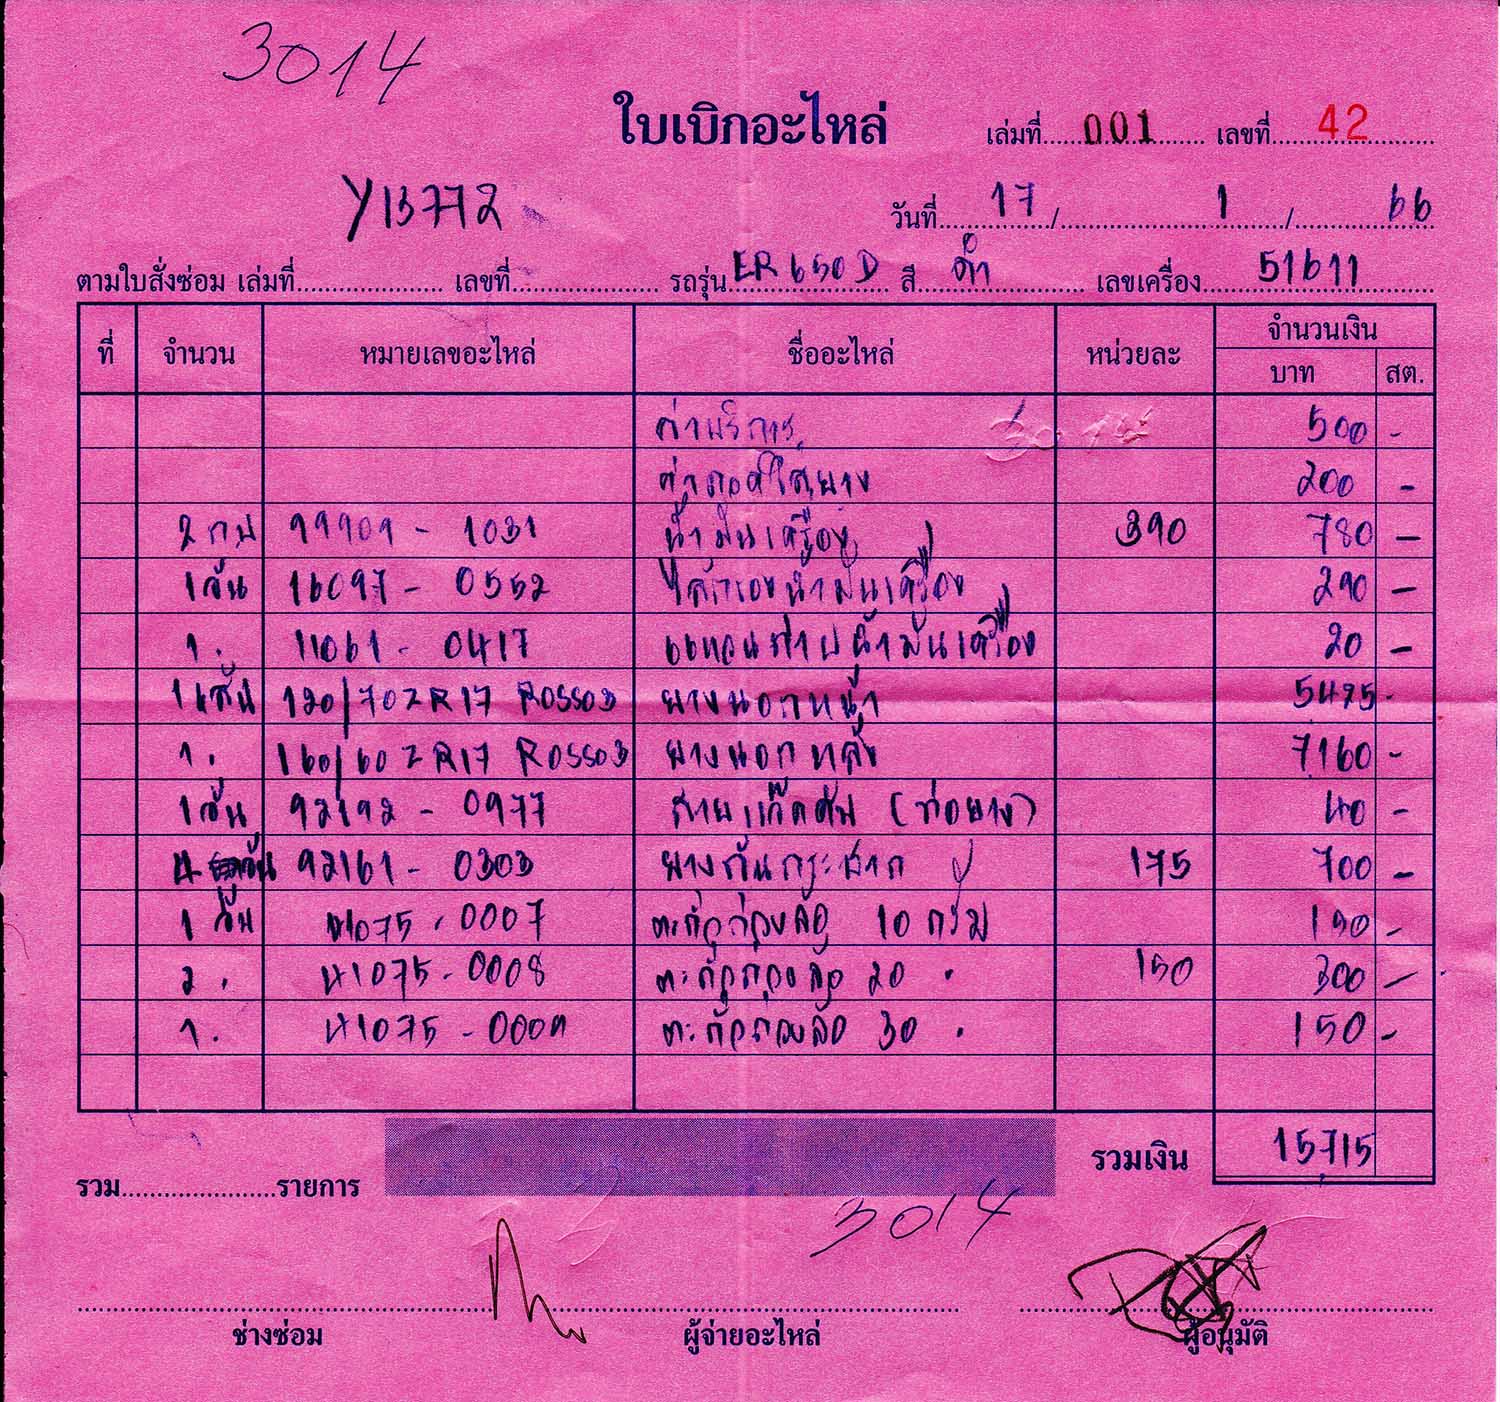 3014
ใบเบิกอะไหล่ เล่มที่ 001 เลขที่ 42
Y13772 วันที่ 17 / 1 / 66
ตามใบสั่งซ่อม เล่มที่ เลขที่ รถรุ่น ER 650 D สี ดำ เลขเครื่อง 51611
ที่ จำนวน หมายเลขอะไหล่ ชื่ออะไหล่ หน่วยละ จำนวนเงิน
บาท สต.
ค่าบริการ 500 -
ค่าถอดใส่ยาง 200 -
2 กป 99909 - 1031 น้ำมันเครื่อง 390 780 -
1 อัน 16097 - 0552 ไส้กรองน้ำมันเครื่อง 290 -
1 . 11061 - 0417 แหวนถ่ายน้ำมันเครื่อง 20 -
1 เส้น 120/70ZR17 ROSSO3 ยางนอกหน้า 5425 -
1 . 160/60ZR17 ROSSO3 ยางนอกหลัง 7160 -
1 อัน 92192 - 0977 (ท่อยาง) 40 -
4 อัน 92161 - 0303 ยางกันกระชาก 175 700 -
1 อัน 41075 - 0007 ตะกั่วถ่วงล้อ 10 กรัม 150 -
2 . 41075 - 0008 ตะกั่วถ่วงล้อ 20 . 150 300 -
1 . 41075 - 0009 ตะกั่วถ่วงล้อ 30 . 150 -
รวมเงิน 15715
รวม รายการ
3014
ช่างซ่อม ผู้จ่ายอะไหล่ ผู้อนุมัติ